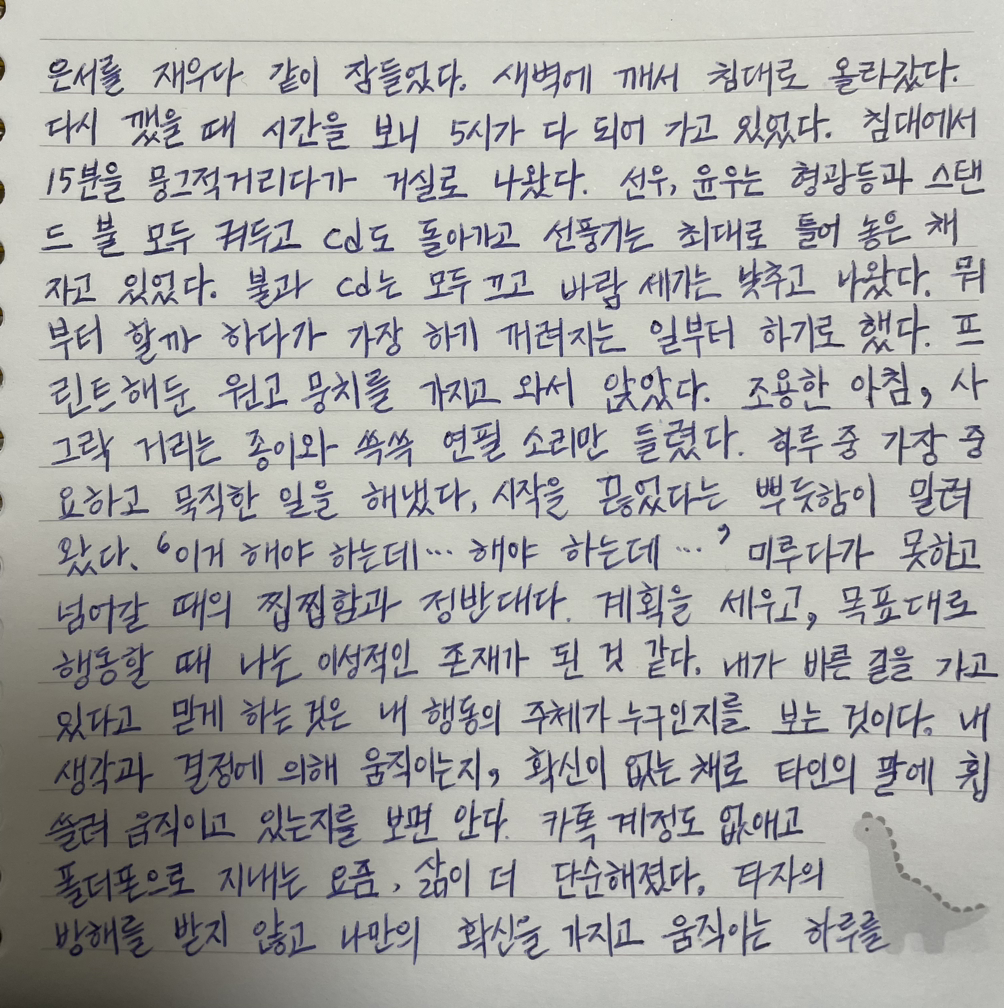 은서를 재우다 같이 잠들었다. 새벽에 깨서 침대로 올라갔다.
다시 깼을 때 시간을 보니 5시가 다 되어 가고 있었다. 침대에서
15분을 뭉그적거리다가 거실로 나왔다. 선우, 윤우는 형광등과 스탠
드 불 모두 켜두고 cd도 돌아가고 선풍기는 최대로 틀어 놓은 채
자고 있었다. 불과 cd는 모두 끄고 바람 세기는 낮추고 나왔다. 뭐
부터 할까 하다가 가장 하기 꺼려지는 일부터 하기로 했다. 프
린트해둔 원고 뭉치를 가지고 와서 앉았다. 조용한 아침, 사
그락 거리는 종이와 쓱쓱 연필 소리만 들렸다. 하루 중 가장 중
요하고 묵직한 일을 해냈다, 시작을 끊었다는 뿌듯함이 밀려
왔다. '이거 해야 하는데… 해야 하는데 …' 미루다가 못하고
넘어갈 때의 찝찝함과 정반대다. 계획을 세우고, 목표대로
행동할 때 나는 이성적인 존재가 된 것 같다. 내가 바른 길을 가고
있다고 믿게 하는것은 내 행동의 주체가 누구인지를 보는 것이다. 내
생각과 결정에 의해 움직이는지, 확신이 없는 채로 타인의 말에 휩
쓸려 움직이고 있는지를 보면 안다. 카톡 계정도 없애고
폴더폰으로 지내는 요즘, 삶이 더 단순해졌다. 타자의
방해를 받지 않고 나만의 확신을 가지고 움직이는 하루를